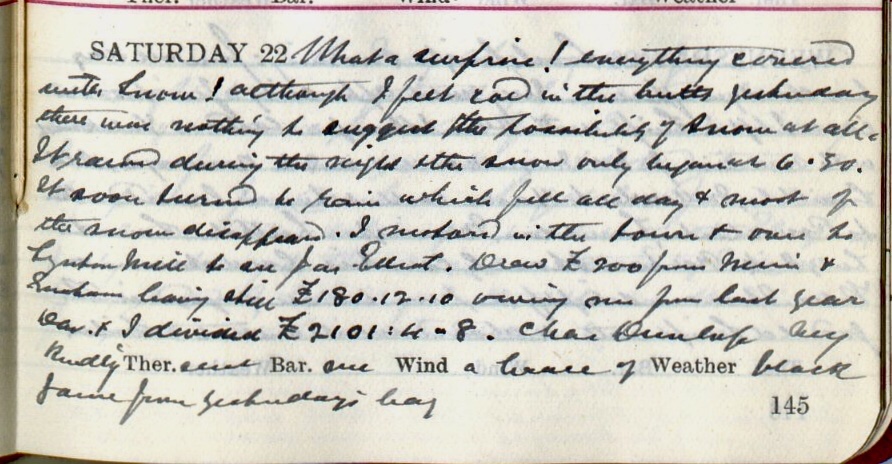 Ther. Bar. Wind Weather
SATURDAY 22 What a surprise! everything covered
with snow! although I felt cold in the butts yesterday
there was nothing to suggest the possibility of snow at all.
It rained during the night & the snow only began at 6.30.
It soon turned to rain which fell all day & most of
the snow disappeared. I motored in the town & over to
Mill to see Jas Elliot. Drew £200 from &
leaving still £180.12.10 owing me from last year
& I divided £2101:4-8. Chas Dunlop very
kindly Ther. sent Bar. me Wind a brace of Weather black
game from yesterday's bag
145